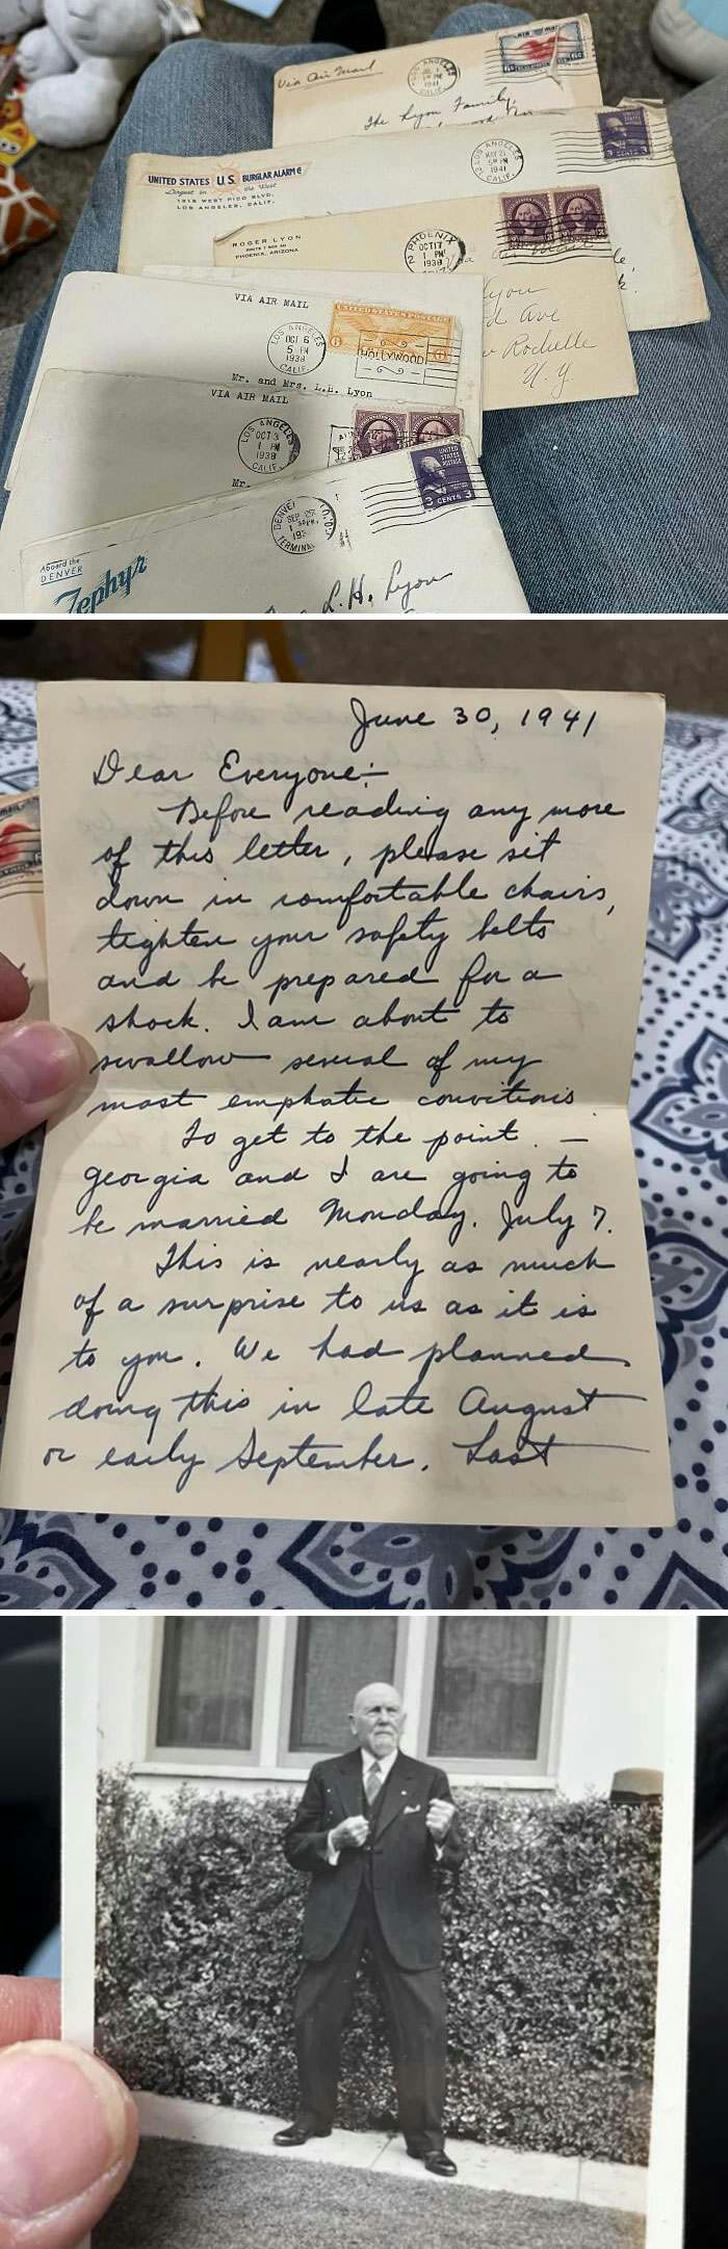 Via Air Mail
LOS ANGELES
1941
CALIF.
AIR MAIL
The Lyon Family
UNITED STATES U.S. BURGLAR ALARM
Largest in the West
1918 WEST PICO BLVD.
LOS ANGELES, CALIF.
LOS ANGELES
MAY 21
5 PM
1941
CALIF.
3 CENTS 3
ROGER LYON
PHOENIX, ARIZONA
PHOENIX
OCT 17
1 PM
1938
Lyon
d Ave
w Rochelle
N.Y.
VIA AIR MAIL
LOS ANGELES
OCT 6
5 PM
1938
CALIF.
UNITED STATES POSTAGE
6 6
HOLLYWOOD
Mr. and Mrs. L.H. Lyon
VIA AIR MAIL
LOS ANGELES
OCT 3
1 PM
1938
CALIF.
Mr.
DENVER
TERMINAL
UNITED
STATES
POSTAGE
3 CENTS 3
Aboard the
DENVER
Zephyr
L.H. Lyon
June 30, 1941
Dear Everyone:-
Before reading any more
of this letter, please sit
down in comfortable chairs,
tighten your safety belts
and be prepared for a
shock. I am about to
swallow several of my
most emphatic convitions
To get to the point. -
Georgia and I are going to
be married Monday, July 7.
This is nearly as much
of a surprise to us as it is
to you. We had planned
doing this in late August
or early September. Last